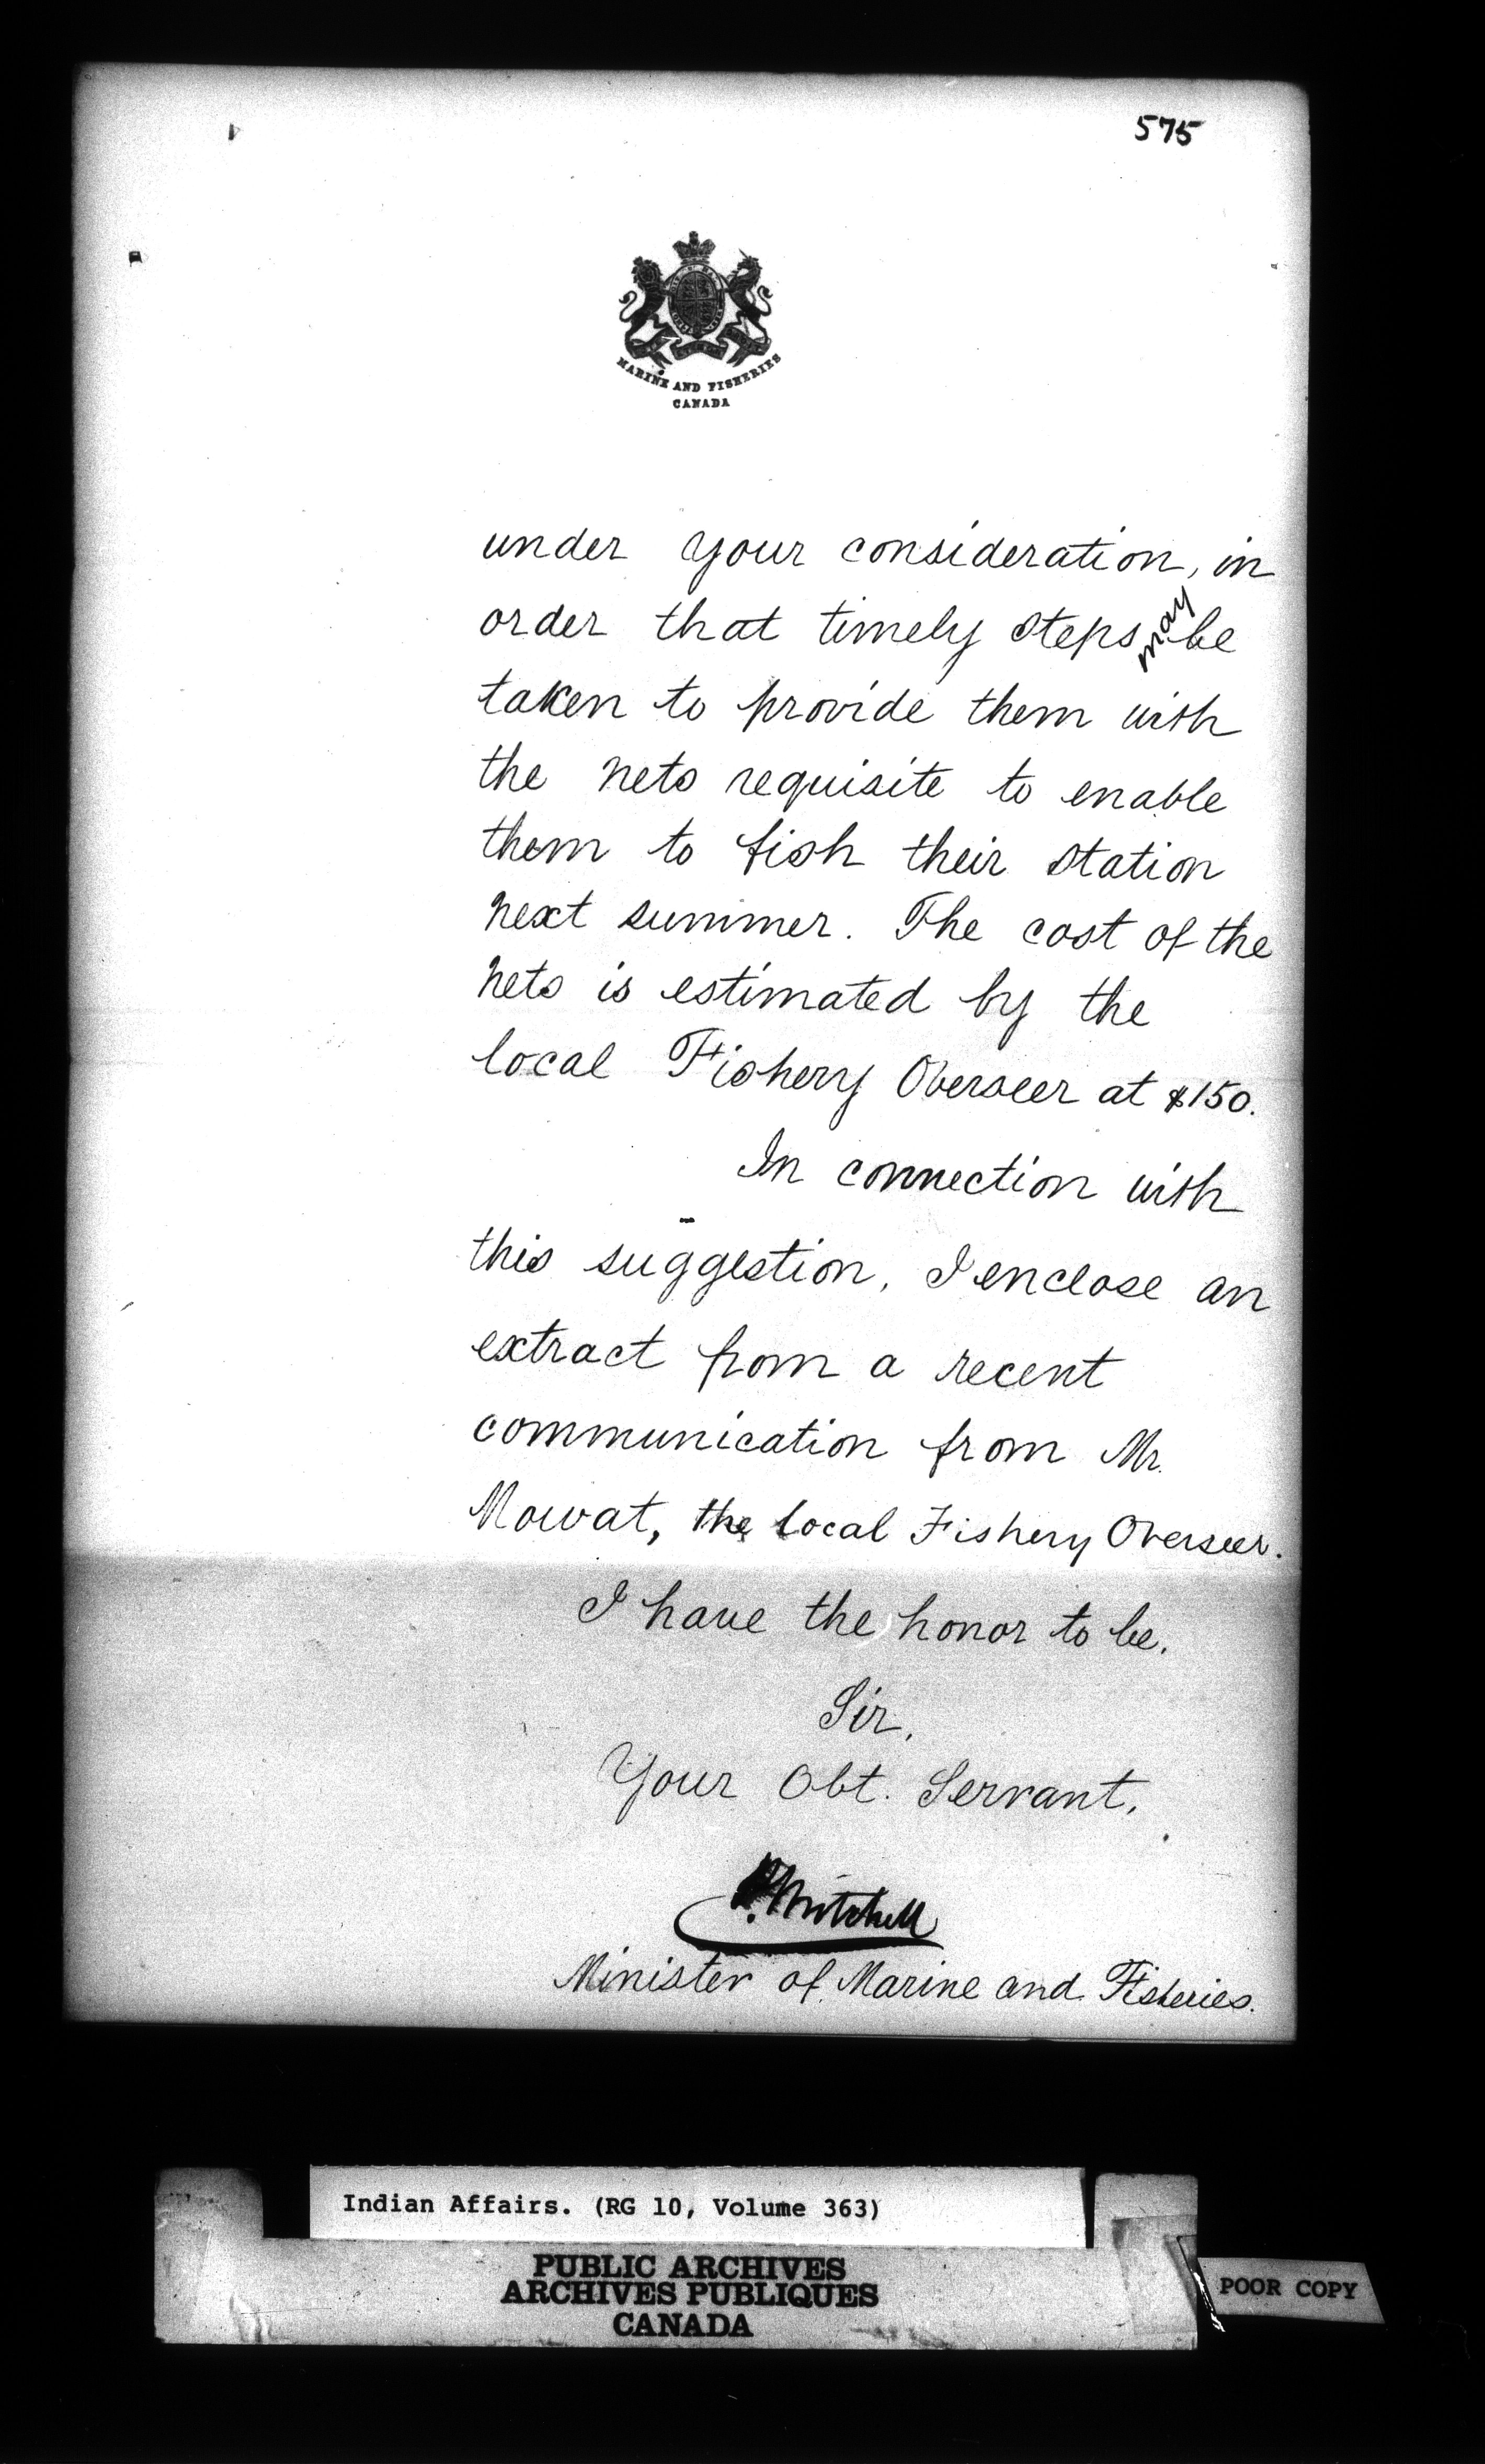 575
MARINE AND FISHERIES
CANADA
under your consideration, in
order that timely steps may be
taken to provide them with
the nets requisite to enable
them to fish their station
next summer. The cost of the
nets is estimated by the
local Fishery Overseer at $150.
In connection with
this suggestion, I enclose an
extract from a recent
communication from Mr.
Mowat, the local Fishery Overseer.
I have the honor to be,
Sir,
Your Obt. Servant,
P. Mitchell
Minister of Marine and Fisheries.
Indian Affairs. (RG 10, Volume 363)
PUBLIC ARCHIVES
ARCHIVES PUBLIQUES
CANADA
POOR COPY